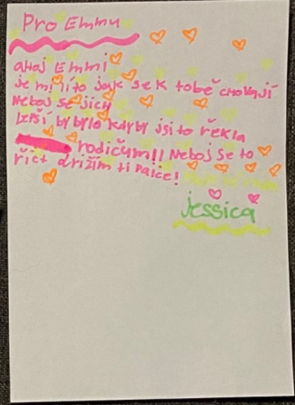 Pro Emmu
ahoj Emmi
je mi líto jak se k tobě chovají
Neboj se jich
Lepší by bylo kdyby jsi to řekla
rodičům!! Neboj se to
říct držím ti palce!
Jessica